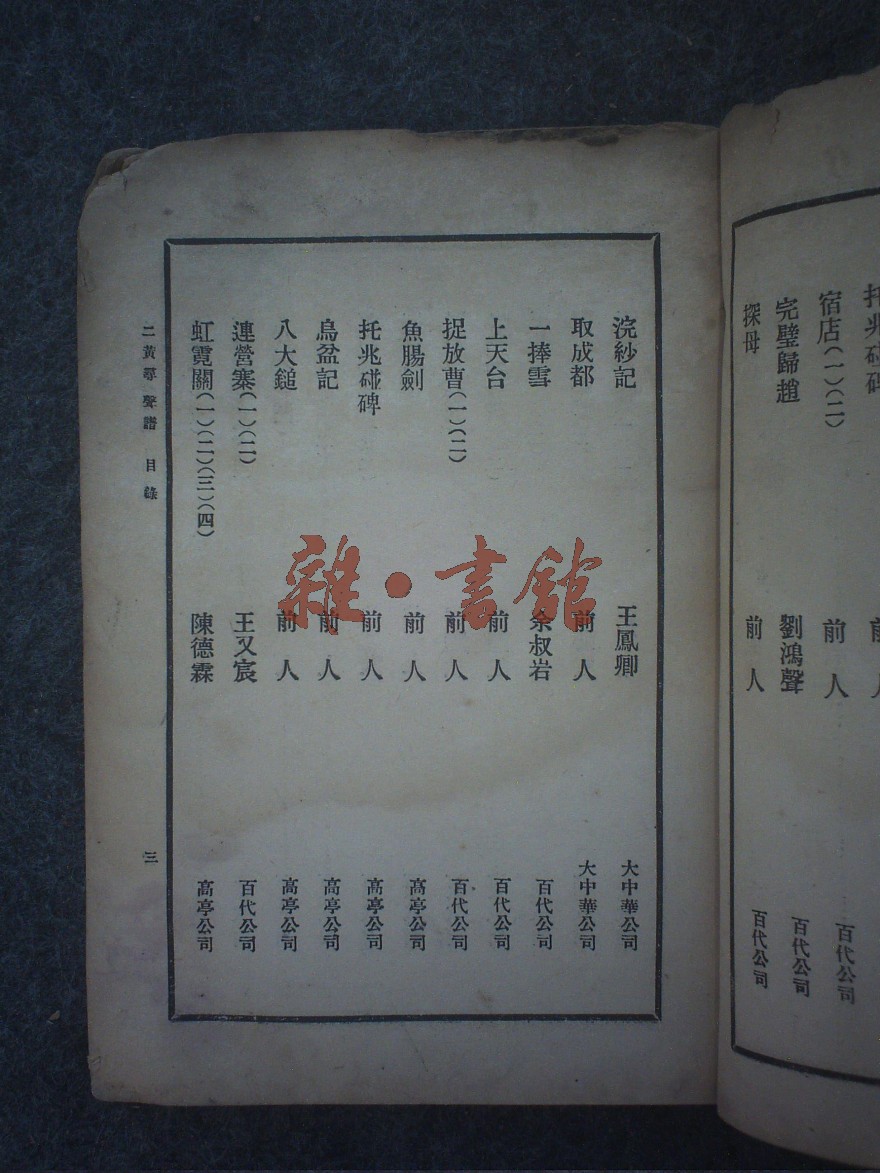 托兆碰碑 前人
宿店(一)(二) 前人 百代公司
完璧歸趙 劉鴻聲 百代公司
探母 前人 百代公司
浣紗記 王鳳卿 大中華公司
取成都 前人 大中華公司
一捧雪 余叔岩 百代公司
上天台 前人 百代公司
捉放曹(一)(二) 前人 百代公司
魚腸劍 前人 高亭公司
托兆碰碑 前人 高亭公司
烏盆記 前人 高亭公司
八大鎚 前人 高亭公司
連營寨(一)(二) 王又宸 百代公司
虹霓關(一)(二)(三)(四) 陳德霖 高亭公司
二黃尋聲譜 目錄 三
雜·書館